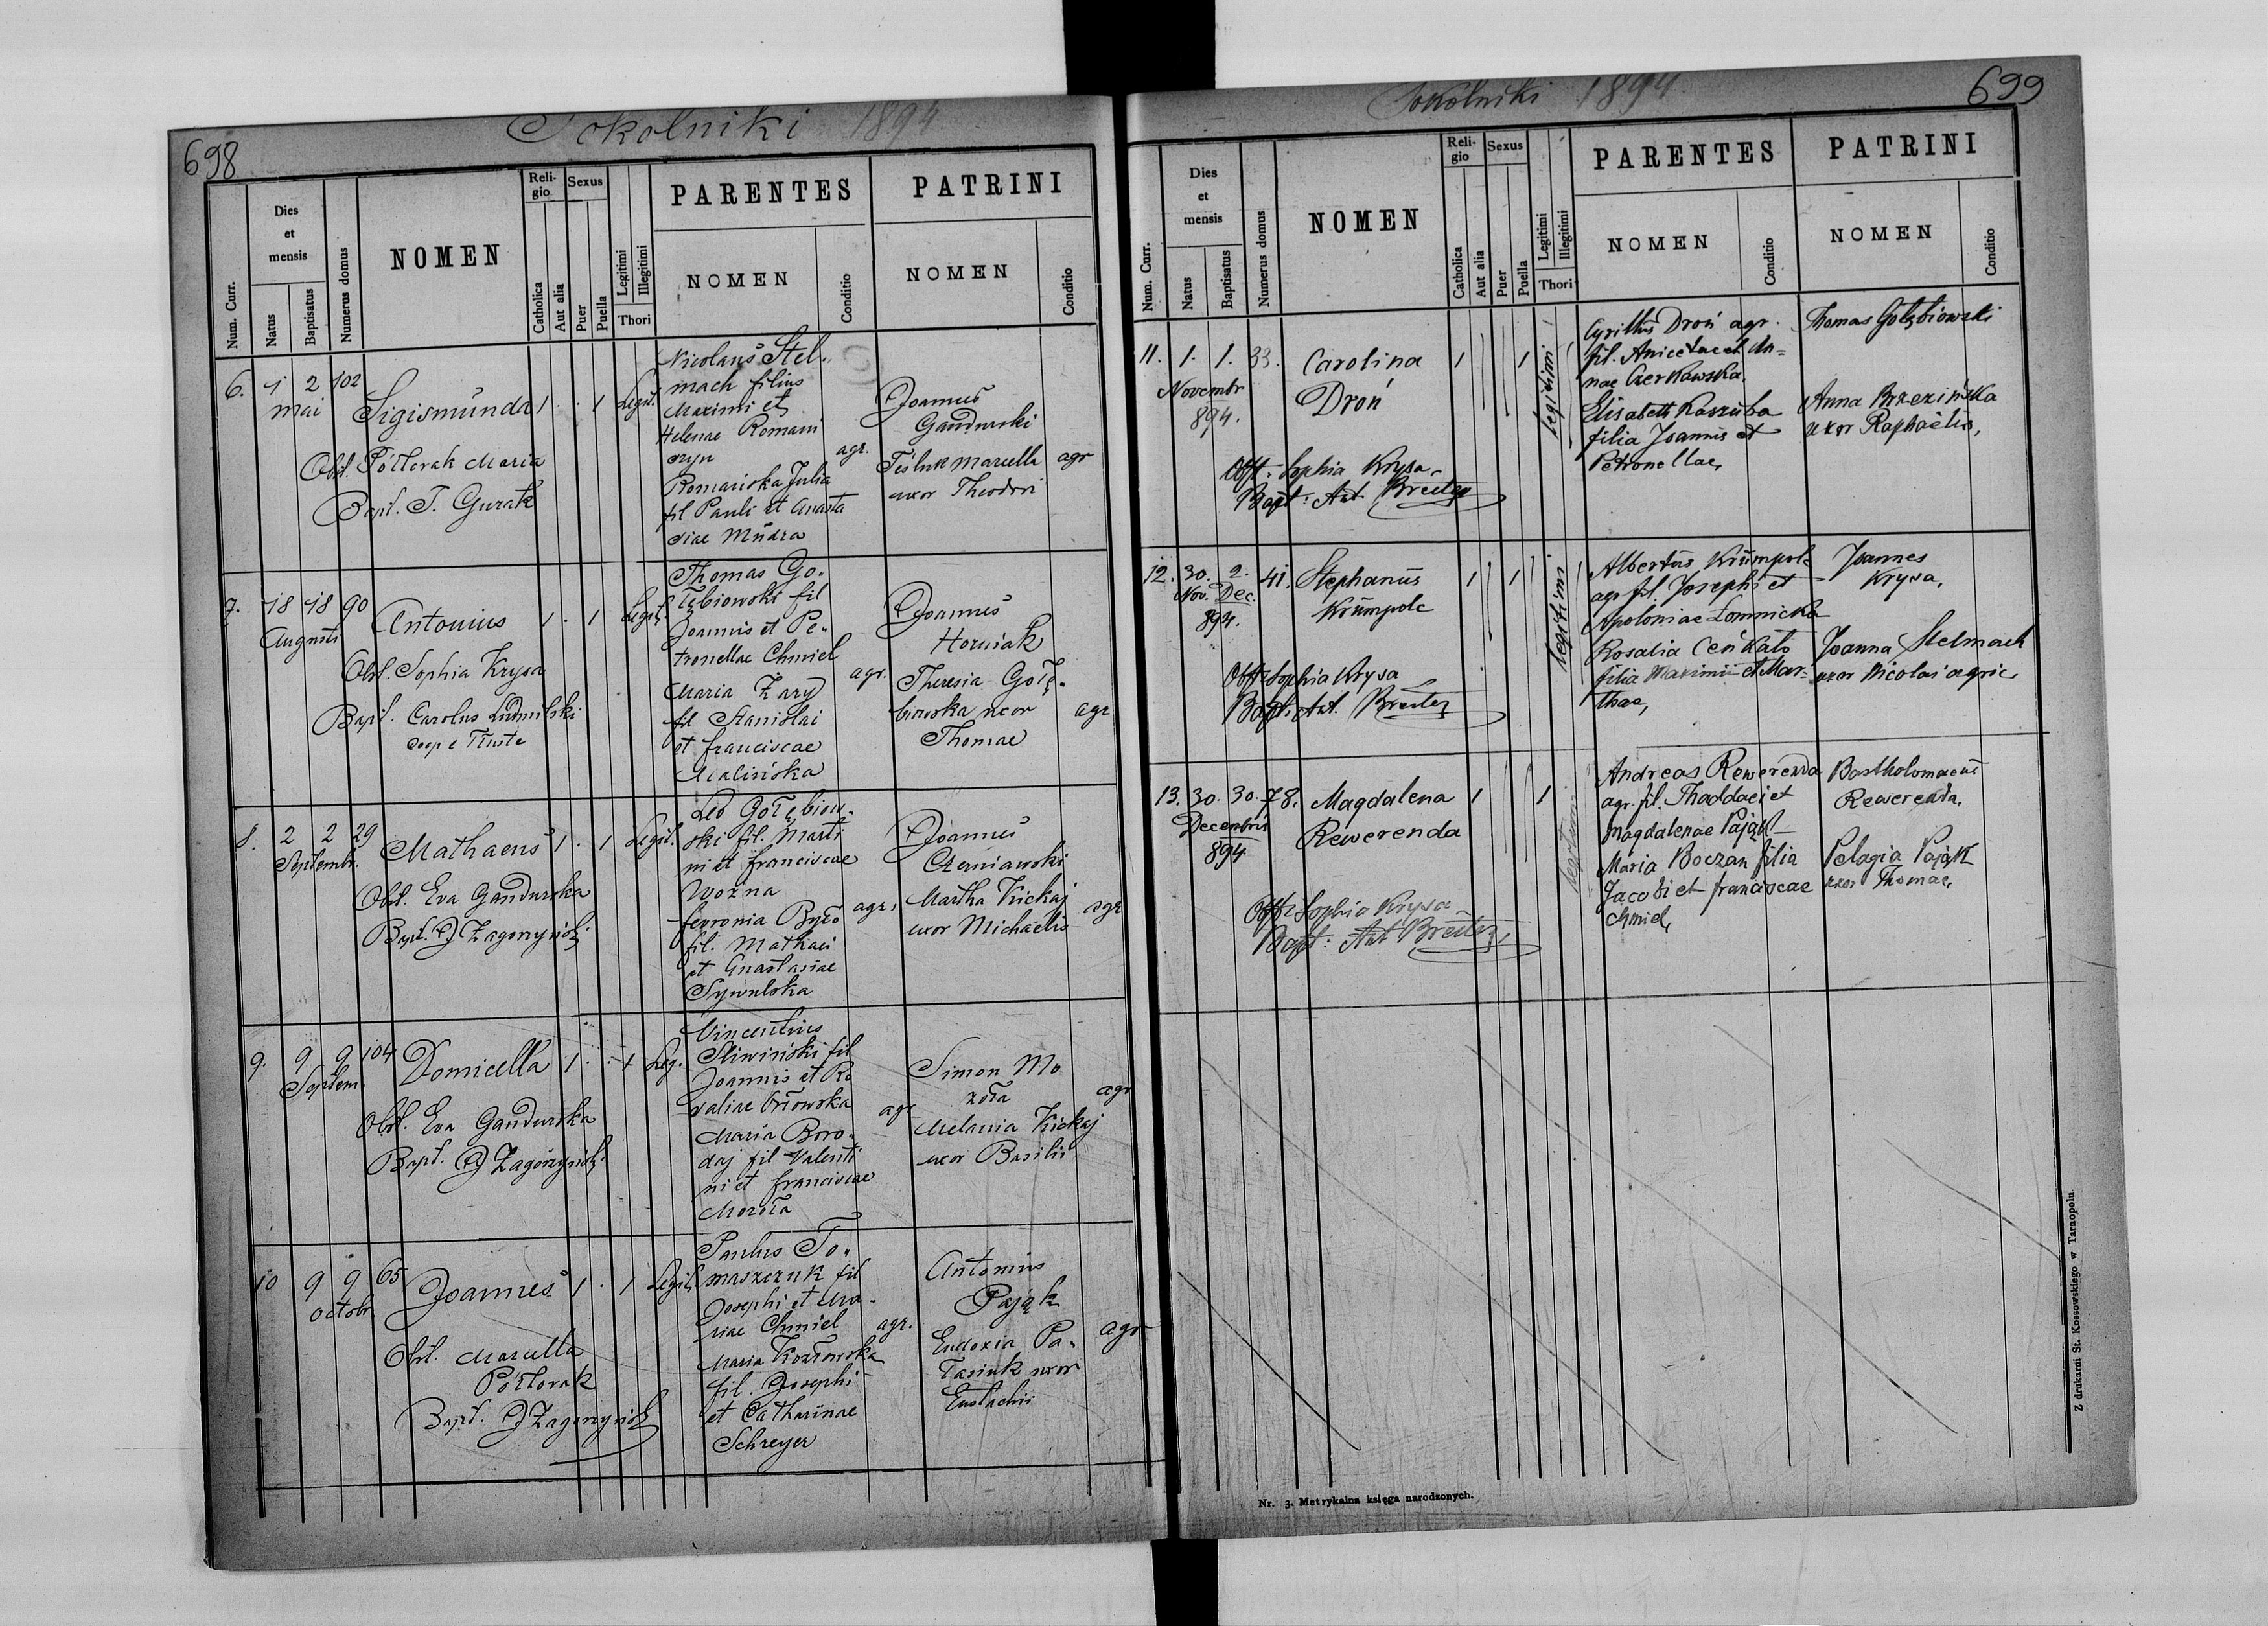 698
Sokolniki 1894
Num. Curr.
Dies
et
mensis
Natus
Baptisatus
Numerus domus
NOMEN
Reli-
gio
Catholica
Aut alia
Sexus
Puer
Puella
Legitimi
Illegitimi
Thori
PARENTES
NOMEN
Conditio
PATRINI
NOMEN
Conditio
6. 1 2 102
mai
Sigismunda 1 . . 1 Legit.
Obst. Półtorak Maria
Bapt. T. Gurak
Nicolaus Stel-
mach filius
Maximi et
Helenae Romani
szyn
Romańska Julia
fil Pauli et Anasta
siae Mudra
agr.
Joannes
Gandurski
Teśluk Marcella
uxor Theodori
agr
7. 18 18 90
Augusti
Antonius 1 . 1 Legit.
Obst. Sophia Krysa
Bapt. Carolus Ludmilski
Coop e Tłuste
Thomas Go-
łębiowski fil
Joannis et Pe-
tronellae Chmiel
Maria Zary
fil Stanislai
et Franciscae
Malińska
agr.
Joannes
Horniak
Theresia Gołę-
biowska uxor
Thomae
agr
8. 2 2 29
Septembr.
Mathaeus 1 . 1 Legit.
Obst. Eva Gandurska
Bapt. J Zagórzyński
Leo Gołębiow-
ski fil. Marti
ni et Franciscae
Woźna
Fevronia Byco
fil. Mathaei
et Anastasiae
Sywulska
agr.
Joannes
Czerniawski
Martha Kickaj
uxor Michaelis
agr
9. 9 9 104
Septem.
Domicella 1 . . 1 Leg.
Obst. Eva Gandurska
Bapt. J Zagórzyński
Vincentius
Śliwiński fil
Joannis et Ro
saliae Orłowska
Maria Boro-
daj fil Valenti
ni et Franciscae
Mozoła
agr
Simon Mo
zoła
Melania Kickaj
uxor Basilii
agr
10 9 9 65
Octobr
Joannes 1 . 1 Legit.
Obst. Marcella
Półtorak
Bapt. J Zagórzyński
Paulus To-
maszczuk fil
Josephi et Ma-
riae Chmiel
Maria Kozłowska
fil. Josephi
et Catharinae
Schreyer
agr.
Antonius
Pająk
Eudoxia Pa-
łasiuk uxor
Eustachii
agr
Sokolniki 1894
699
Num. Curr.
Dies
et
mensis
Natus
Baptisatus
Numerus domus
NOMEN
Reli-
gio
Catholica
Aut alia
Sexus
Puer
Puella
Legitimi
Illegitimi
Thori
PARENTES
NOMEN
Conditio
PATRINI
NOMEN
Conditio
11. 1. 1. 33. Carolina 1 1 legitimi
Novembr
894.
Droń
Obst: Sophia Krysa
Bapt: Ant Breiter
Cyrillus Droń agr.
fil. Anicetae et An=
nae Czerkawska.
Elisabeth Kaszuba
filia Joannis et
Petronellae,
Thomas Gołębiowski
Anna Brzezińska
uxor Raphaelis,
12. 30. 2. 41. Stephanus 1 1 legitimi
Nov. Dec.
894.
Krümpolc
Obst: Sophia Krysa
Bapt: Ant. Breiter
Albertus Krümpolc
agr fil. Josephi et
Apoloniae Łomnicka
Rosalia Ceńkało
filia Maximii et Mar=
thae,
Joannes
Krysa,
Joanna Stelmach
uxor Nicolai agric,
13. 30. 30. 78. Magdalena 1 1 legitimi
Decembris
894
Rewerenda
Obst: Sophia Krysa
Bapt: Ant Breiter
Andreas Rewerenda
agr. fil. Thaddaei et
Magdalenae Pająk
Maria Boczan filia
Jacobi et Franciscae
Chmiel,
Bartholomaeus
Rewerenda,
Pelagia Pająk
uxor Thomae,
Nr. 3. Metrykalna księga narodzonych.
Z drukarni St. Kossowskiego w Tarnopolu.